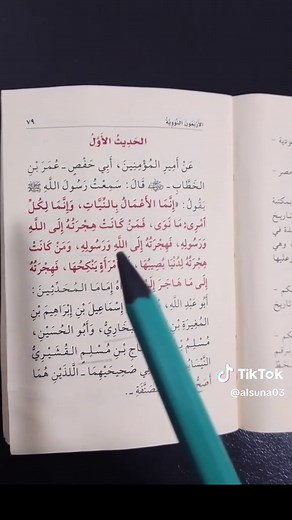 الأربعون النووية
٧٩
الحَدِيثُ الأَوَّلُ
عَنْ أَمِيرِ المُؤْمِنِينَ، أَبِي حَفْصٍ - عُمَرَ بْنِ
الخَطَّابِ - رضي الله عنه قَالَ: سَمِعْتُ رَسُولَ اللَّهِ ﷺ
يَقُولُ: «إِنَّمَا الأَعْمَالُ بِالنِّيَّاتِ، وَإِنَّمَا لِكُلِّ
امْرِىءٍ مَا نَوَى، فَمَنْ كَانَتْ هِجْرَتُهُ إِلَى اللَّهِ
وَرَسُولِهِ، فَهِجْرَتُهُ إِلَى اللَّهِ وَرَسُولِهِ، وَمَنْ كَانَتْ
هِجْرَتُهُ لِدُنْيَا يُصِيبُهَا، مْرَأَةٍ يَنْكِحُهَا، فَهِجْرَتُهُ
إِلَى مَا هَاجَرَ إِلَ هُ إِمَامَا المُحَدِّثِينَ:
أَبُو عَبْدِ اللَّهِ، إِسْمَاعِيلَ بْنِ إِبْرَاهِيمَ بْنِ
المُغِيرَةِ بْنِ خَارِيُّ، وَأَبُو الحُسَيْنِ،
مُسْلِمُ بْنُ اجِ بْنِ مُسْلِمٍ القُشَيْرِيُّ
النَّيْسَا ي صَحِيحَيْهِمَا - اللَّذَيْنِ هُمَا
أَصَ صَنَّفَةِ -.
TikTok
@alsuna03